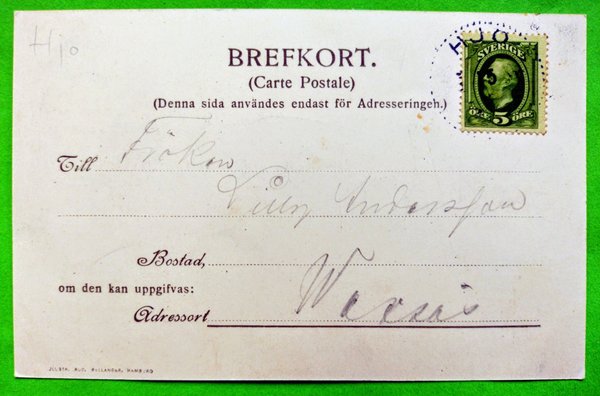 Hjo
BREFKORT.
(Carte Postale)
(Denna sida användes endast för Adresseringen.)
HJO
SVERIGE
ÖRE 5 ÖRE
Till Fröken
Lilly Andersson
Bostad,
om den kan uppgifvas:
Adressort